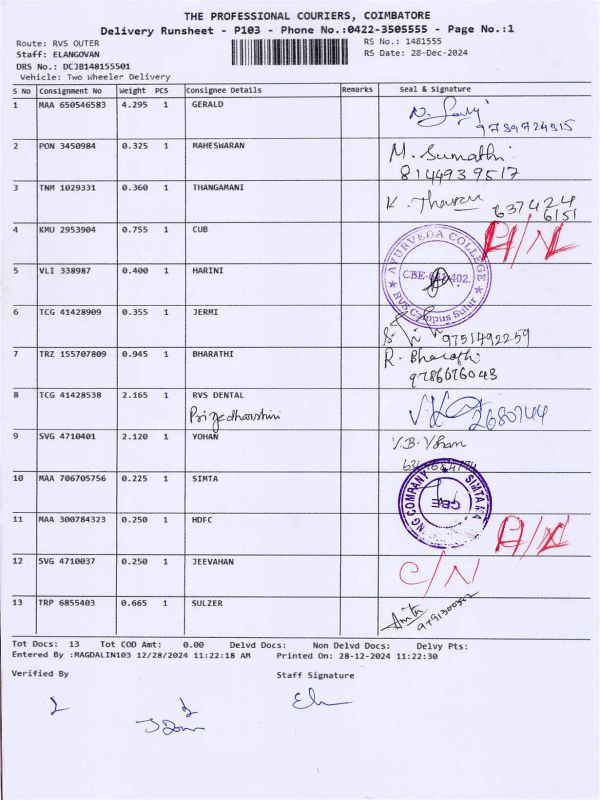 THE PROFESSIONAL COURIERS, COIMBATORE
Delivery Runsheet - P103 - Phone No.:0422-3505555 - Page No.:1
Route: RVS OUTER
RS No.: 1481555
Staff: ELANGOVAN
RS Date: 28-Dec-2024
DRS No.: DCJB148155501
Vehicle: Two Wheeler Delivery
S No Consignment No Weight PCS Consignee Details Remarks Seal & Signature
1 MAA 650546583 4.295 1 GERALD
9789724915
2 PON 3450984 0.325 1 MAHESWARAN M. Sumathi
8144939517
3 TNM 1029331 0.360 1 THANGAMANI
637424
6151
4 KMU 2953904 0.755 1 CUB A/N
AYURVEDA COLLEGE
RVS Campus Sulur
5 VLI 338987 0.400 1 HARINI
6 TCG 41428909 0.355 1 JERMI
9751492259
7 TRZ 155707809 0.945 1 BHARATHI R. Bharathi
9786676043
8 TCG 41428538 2.165 1 RVS DENTAL
Priyedharshini 2680744
9 SVG 4710401 2.120 1 YOHAN V.B. Yohan
10 MAA 706705756 0.225 1 SIMTA
CBE
11 MAA 300784323 0.250 1 HDFC A/N
12 SVG 4710037 0.250 1 JEEVAHAN C/N
13 TRP 6855403 0.665 1 SULZER
Tot Docs: 13 Tot COD Amt: 0.00 Delvd Docs: Non Delvd Docs: Delvy Pts:
Entered By :MAGDALIN103 12/28/2024 11:22:18 AM Printed On: 28-12-2024 11:22:30
Verified By
Staff Signature